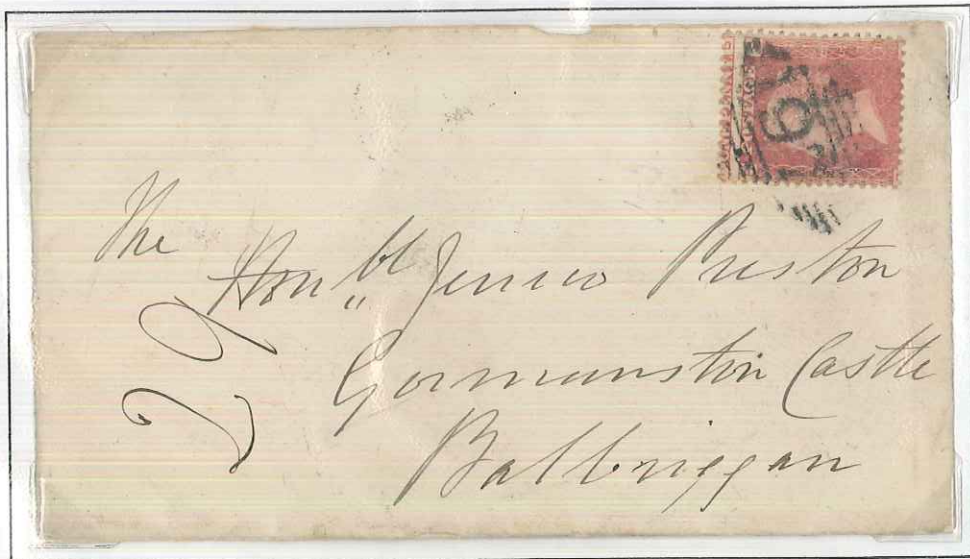 The
Hon,,ble Jenico Preston
Gormanston Castle
Balbriggan
29